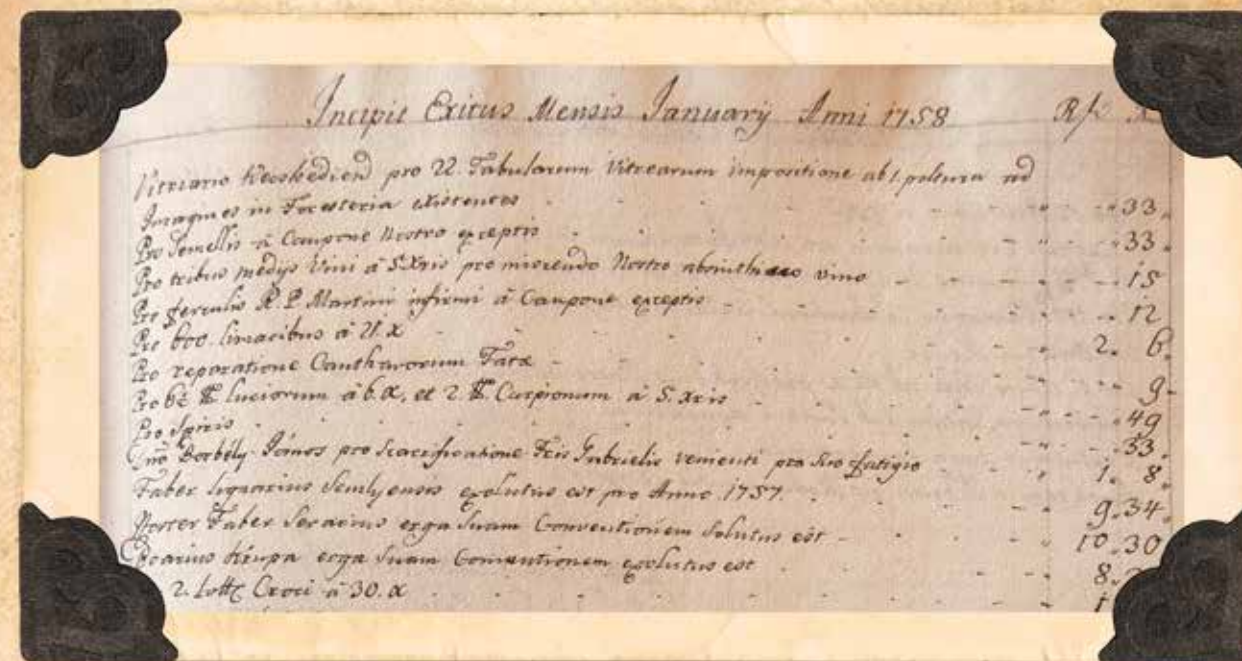 Incipit Exitus Mensis Januarÿ Anni 1758 Rf x
Vitriario pro 22. Tabularum Vitrearum impositione ab 1. poltura ad
Imagines in Foresteria existentes 33
Pro Semellis à Caupone Nostro exceptis 33
Pro tribus medÿs Vini à 5 Xris pro miscendo Nostro vino 15
Pro ferculis R. P. Martini infirmi à Caupone exceptis 12
Pro 600. limacibus à 21. x 2. 6
Pro reparatione Cantharorum 9
Pro luciorum à 6. x, et 2. Carpionum à 5. Xris 49
Pro Spiris 33
Borbély János pro scarificatione Fris Gabrielis venienti pro suo fatigio 1. 8
Faber lignarius exolutus est pro Anno 1757. 9. 34
Noster Faber Serarius erga Suam Conventionem Solutus est 10. 30
Krupa erga Suam Conventionem exolutus est 8.
2. Croci à 30. x 1